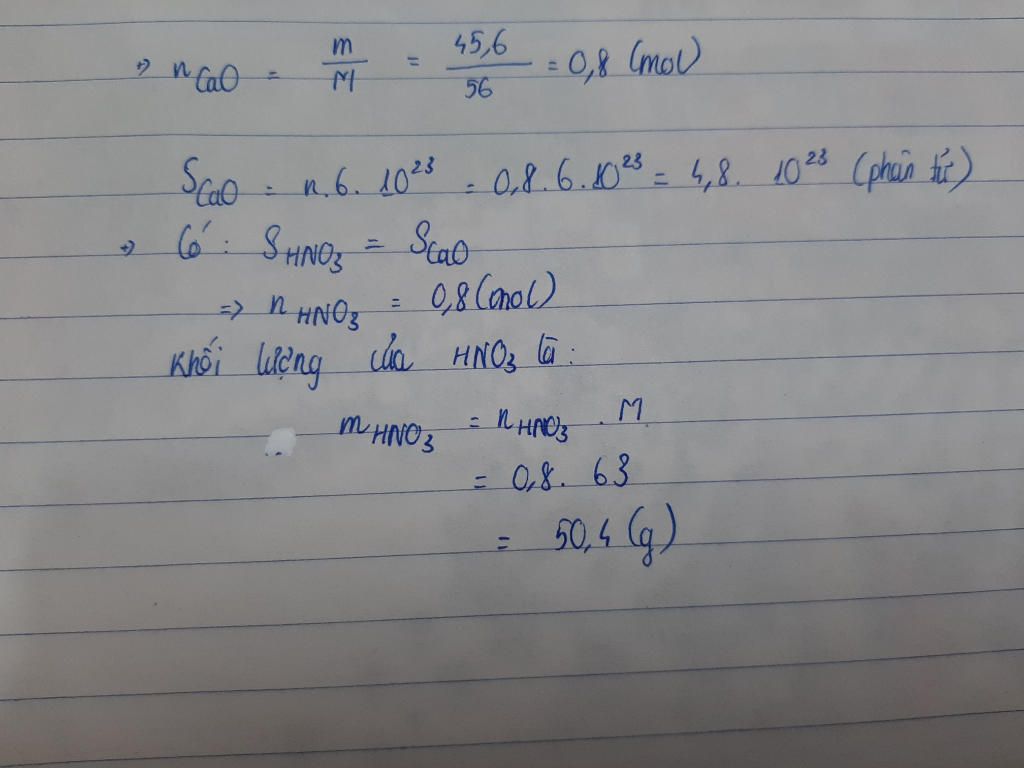 => nCaO = m/M = 45,6/56 = 0,8 (mol)
SCaO = n.6. 10^23 = 0,8.6.10^23 = 4,8. 10^23 (phân tử)
=> Có: SHNO3 = SCaO
=> nHNO3 = 0,8 (mol)
Khối lượng của HNO3 là:
mHNO3 = nHNO3 . M
= 0,8. 63
= 50,4 (g)